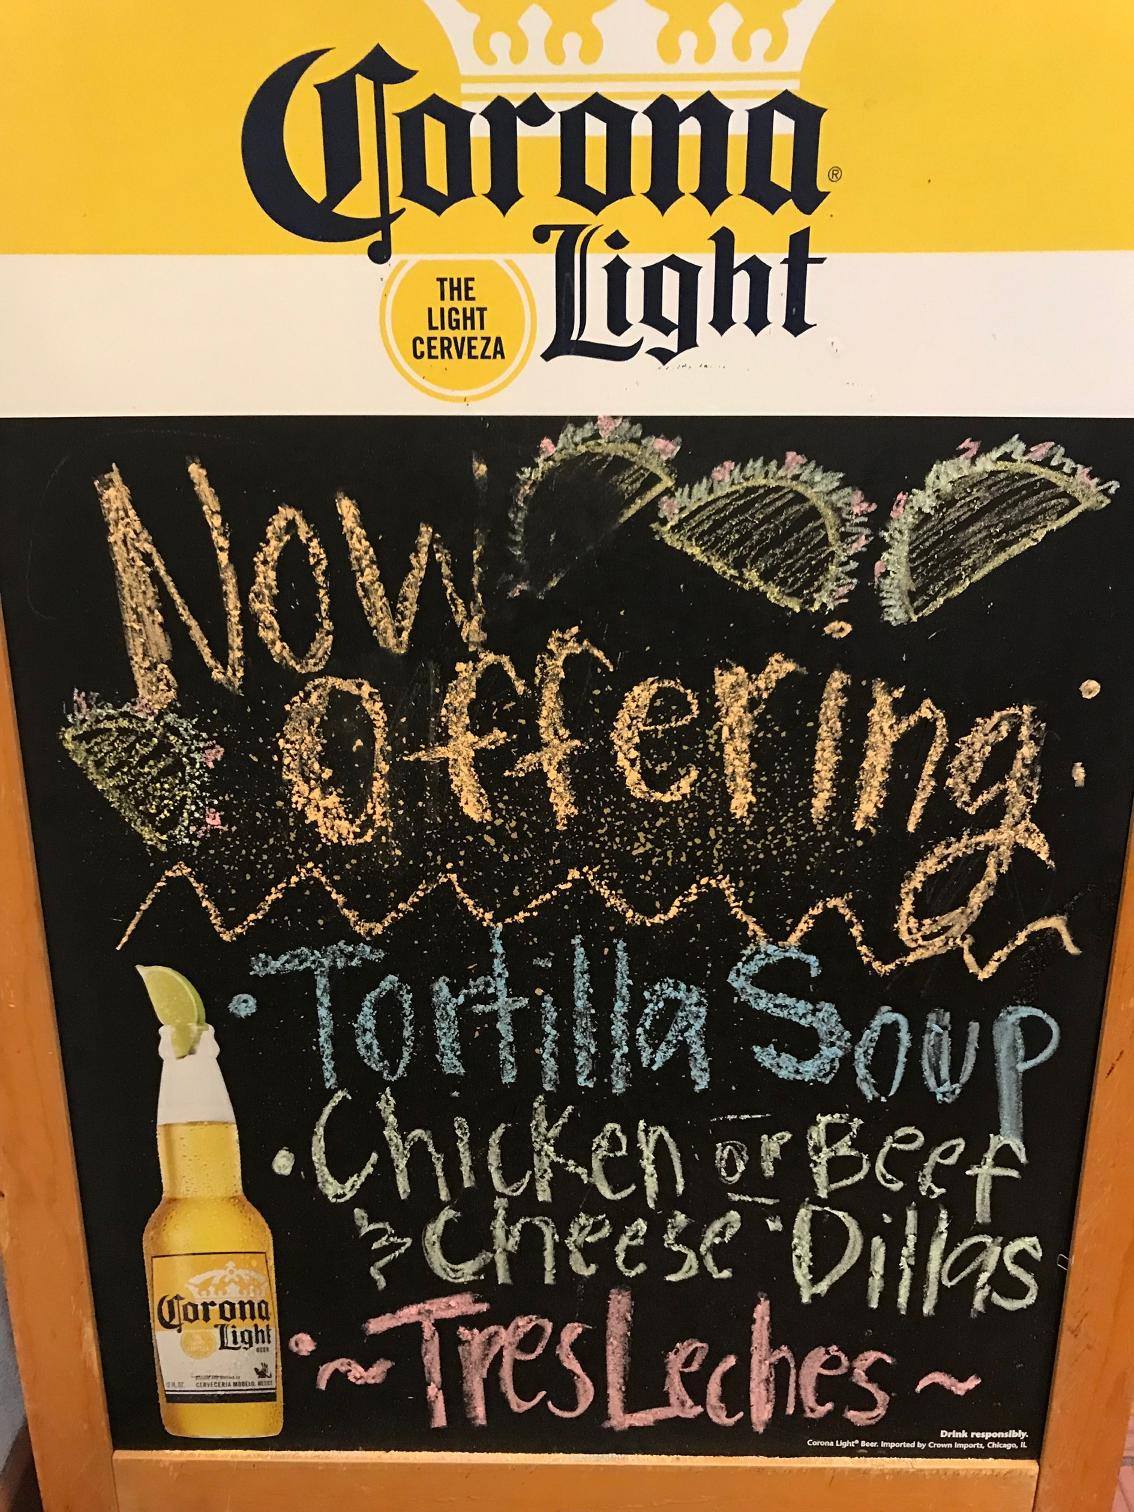 Corona®
Light
THE
LIGHT
CERVEZA
Now
offering:
• Tortilla Soup
• Chicken or Beef
& Cheese 'Dillas
• ~ Tres Leches ~
Corona
Light
BEER
CERVECERIA MODELO, MEXICO
Drink responsibly.
Corona Light® Beer. Imported by Crown Imports, Chicago, IL